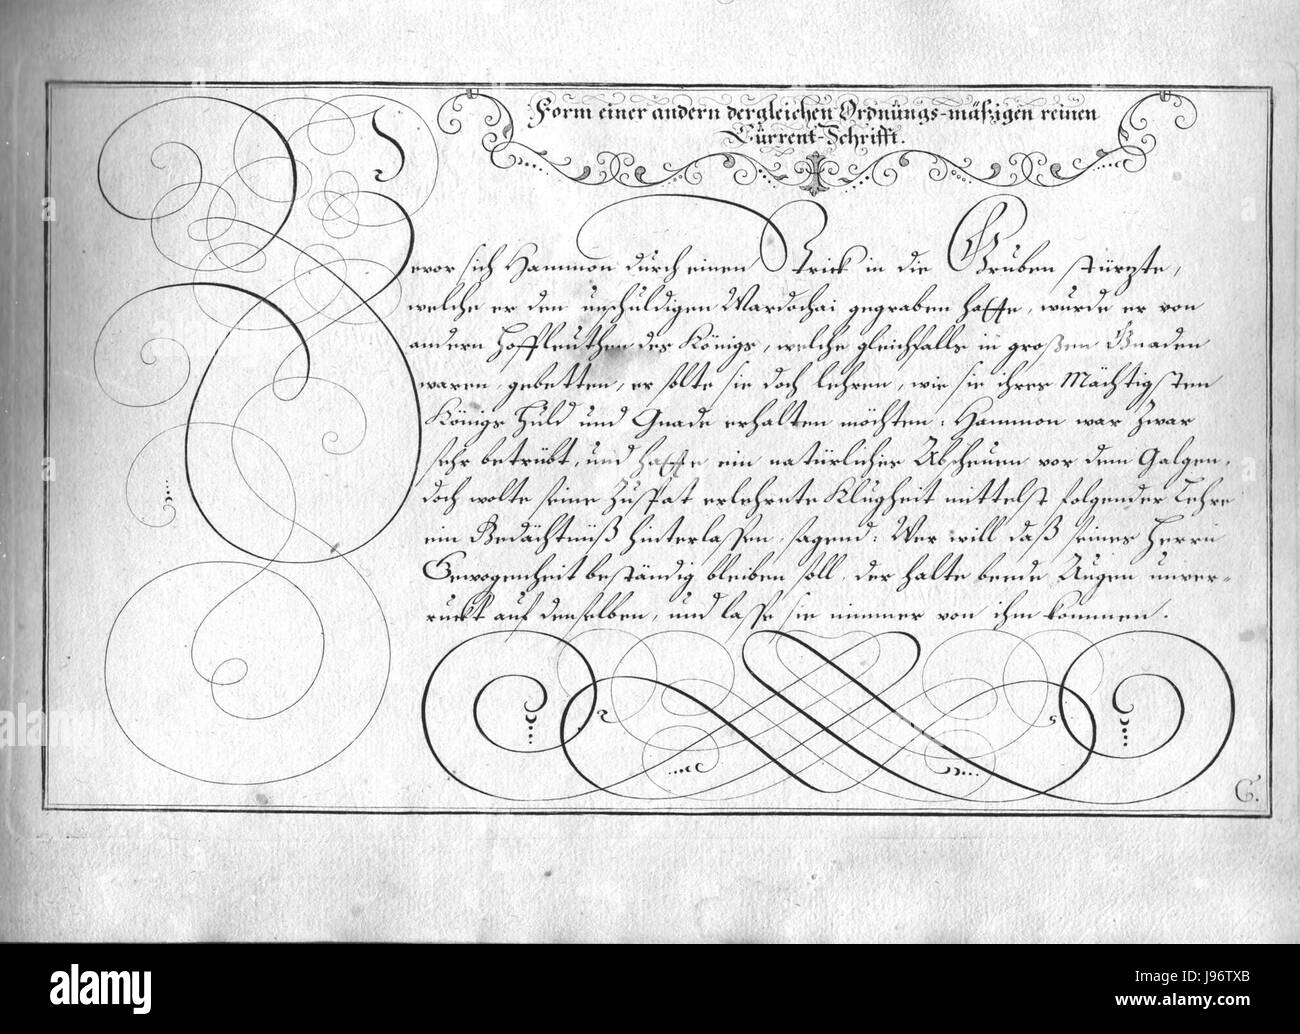 Form einer andern dergleichen Ordnungs-mäßigen reinen
Current-Schrifft.
Bevor sich Hammon durch einen Strick in die Gruben stürzte,
welche er den unschuldigen Mardochai gegraben hatte, wurde er von
andern Hoffleuthen des Königs, welche gleichfalls in großen Gnaden
waren, gebetten, er solte sie doch lehren, wie sie ihres Mächtigsten
Königs Huld und Gnade erhalten möchten: Hammon war zwar
sehr betrübt, und hatte ein natürliches Abscheuen vor dem Galgen,
doch wolte seine zuspat erlehrnte Klugheit mittelst folgender Lehre
ein Gedächtniß hinterlassen, sagend: Wer will daß seines Herrn
Gewogenheit beständig bleiben soll, der halte beede Augen unver-
ruckt auf denselben, und lasse sie nimmer von ihm kommen.
G.
alamy
a
a
alamy
Image ID: J96TXB
www.alamy.com